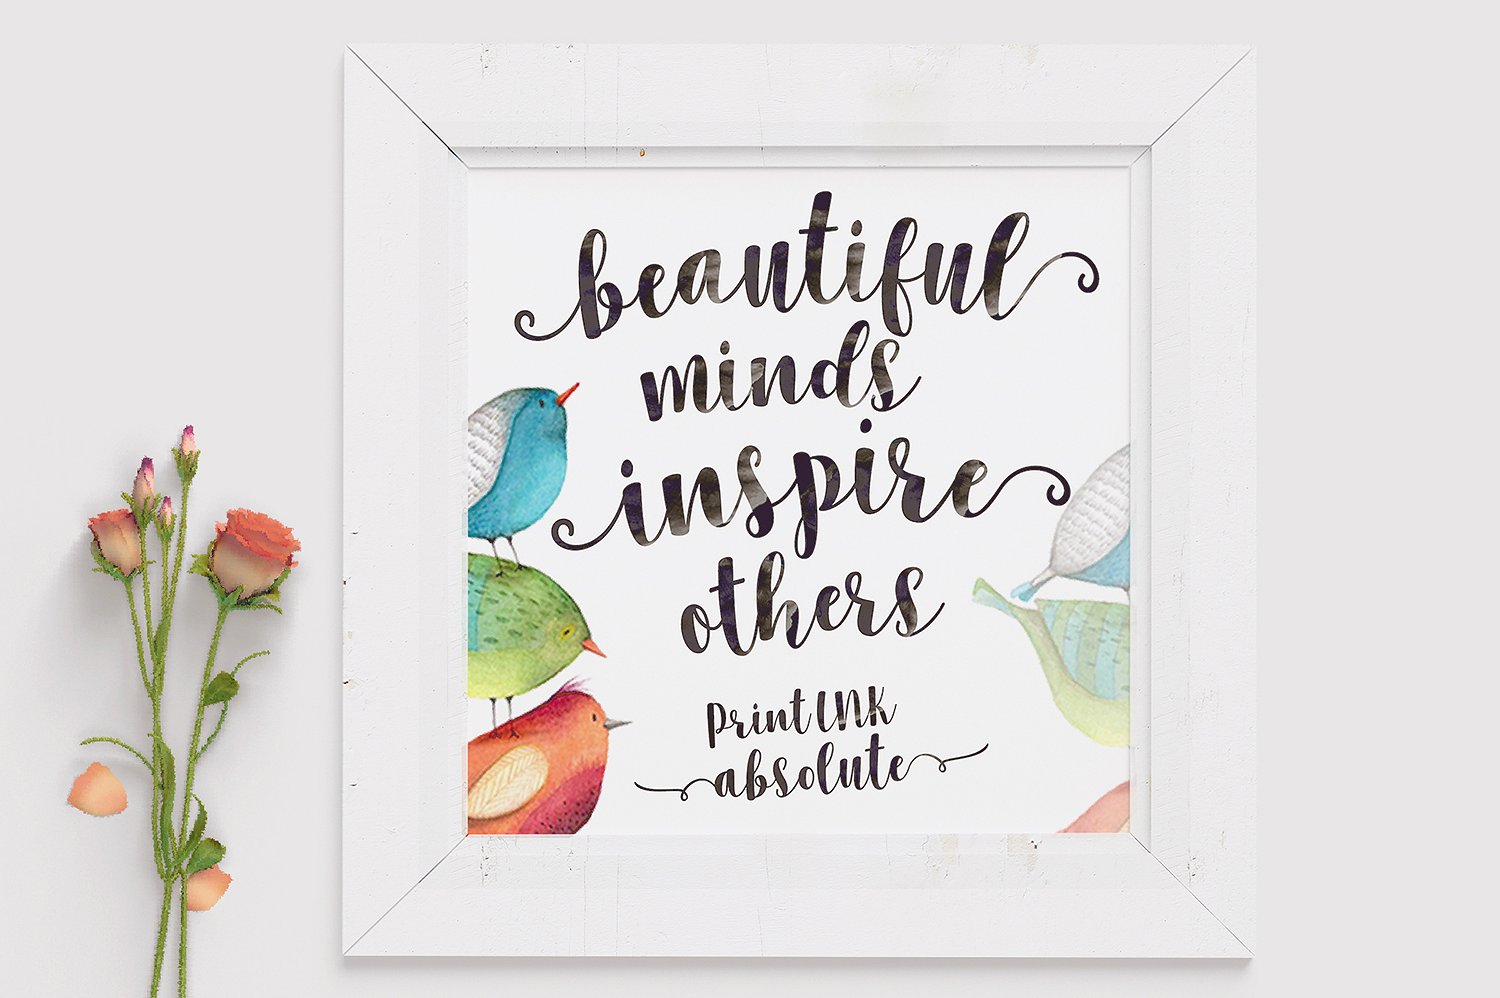 beautiful
minds
inspire
others
print INK
absolute